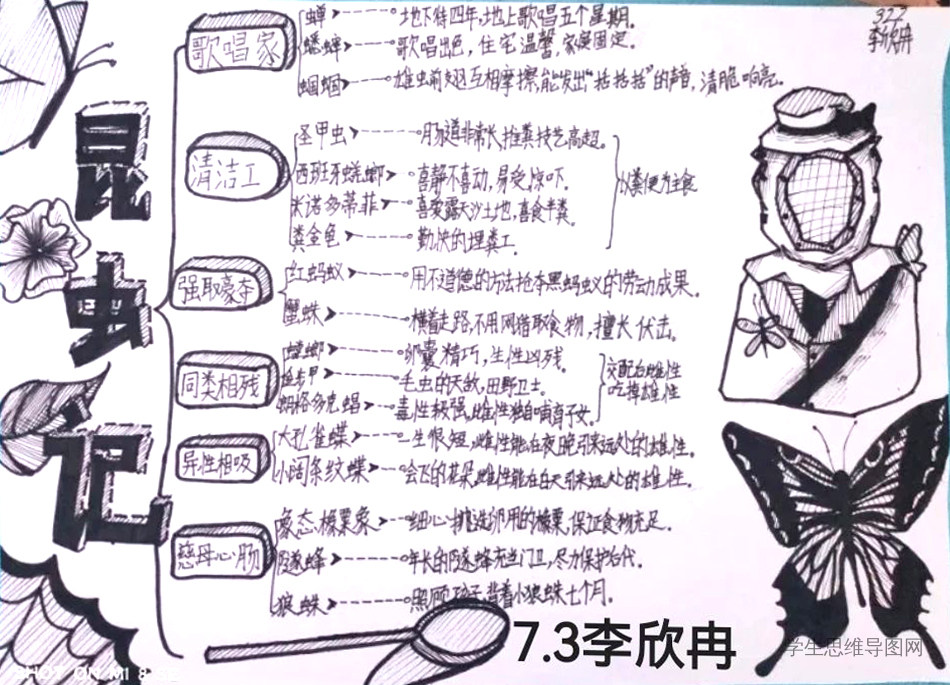 322
李欣冉
昆虫记
歌唱家
蝉 地下待四年,地上歌唱五个星期。
蟋蟀 歌唱出色,住宅温馨,家庭固定。
蝈蝈 雄虫前翅互相摩擦,能发出“括括括”的声音,清脆响亮。
清洁工
圣甲虫 肠道非常长,推粪技艺高超。
西班牙蜣螂 喜静不喜动,易受惊吓。
米诺多蒂菲 喜爱露天沙土地,喜食羊粪。
粪金龟 勤快的埋粪工。
以粪便为主食
强取豪夺
红蚂蚁 用不道德的方法抢夺黑蚂蚁的劳动成果。
蟹蛛 横着走路,不用网猎取食物,擅长伏击。
同类相残
螳螂 卵囊精巧,生性凶残。
步甲 毛虫的天敌,田野卫士。
朗格多克蝎 毒性极强,雌性独自哺育子女。
交配后雌性
吃掉雄性
异性相吸
大孔雀蝶 一生很短,雌性能在夜晚引来远处的雄性。
小阔条纹蝶 会飞的花朵,雌性能在白天引来远处的雄性。
慈母心肠
象态橡栗象 细心挑选卵用的橡栗,保证食物充足。
隧蜂 年长的隧蜂充当门卫,尽力保护后代。
狼蛛 照顾孩子,背着小狼蛛七个月。
7.3李欣冉
学生思维导图网
SHOT ON MI 8